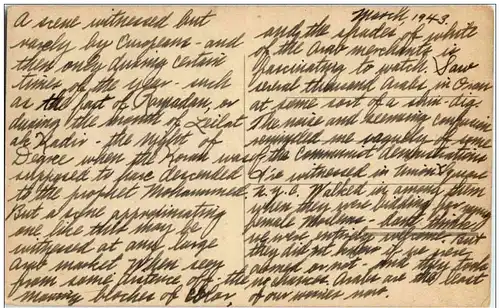 A scene witnessed but
rarely by Europeans - and
then only during certain
times of the year - such
as the fast of Ramadan, or
during the month of Leilat
al Kadir - the night of
Decree when the Koran was
supposed to have descended
to the prophet Mohammed.
But a scene approximating
one like that may be
witnessed at any large
Arab market. When seen
from some distance off - the
many blotches of color,
March, 1943.
and the splashes of white
of the Arab merchants is
fascinating to watch. Saw
several thousand Arabs in Oran
at some sort of a shin-dig.
The noise and seeming confusion
reminded me vaguely of some
of the Communist demonstrations
I've witnessed in Union Square
N.Y.C. Walked in among them
when they were bidding for
female Moslems - don't think
we were entirely welcome. But
they did not know if we were
armed or not - and they took
no chances. Arabs are the least
of our worries now.